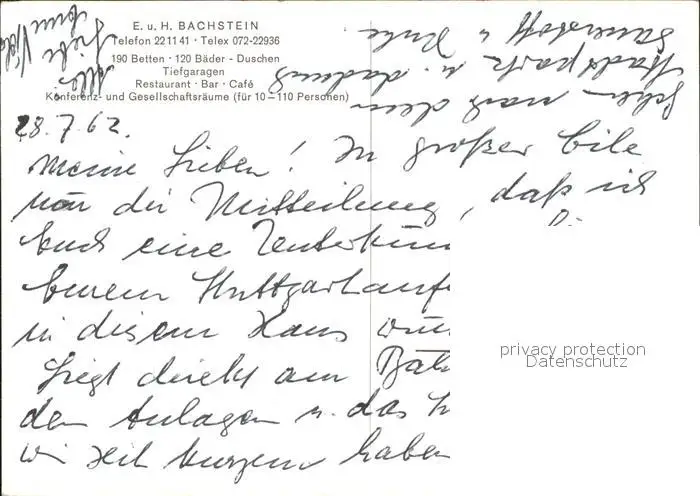 E. u. H. BACHSTEIN
Telefon 22 11 41 · Telex 072-22936
190 Betten · 120 Bäder - Duschen
Tiefgaragen
Restaurant · Bar · Café
Konferenz- und Gesellschaftsräume (für 10–110 Personen)
28.7.62.
Meine Lieben! In großer Eile
nur die Mitteilung, daß ich
Euch eine Unterkun
Eurem Stuttgartaufe
in diesem Haus
Liegt direkt am
den Anlagen u. das
wir seit kurzem haben
schon nach dem
Stadtpark u. dadurch
Sauerstoff u. Ruhe
Alles
Liebe
privacy protection
Datenschutz